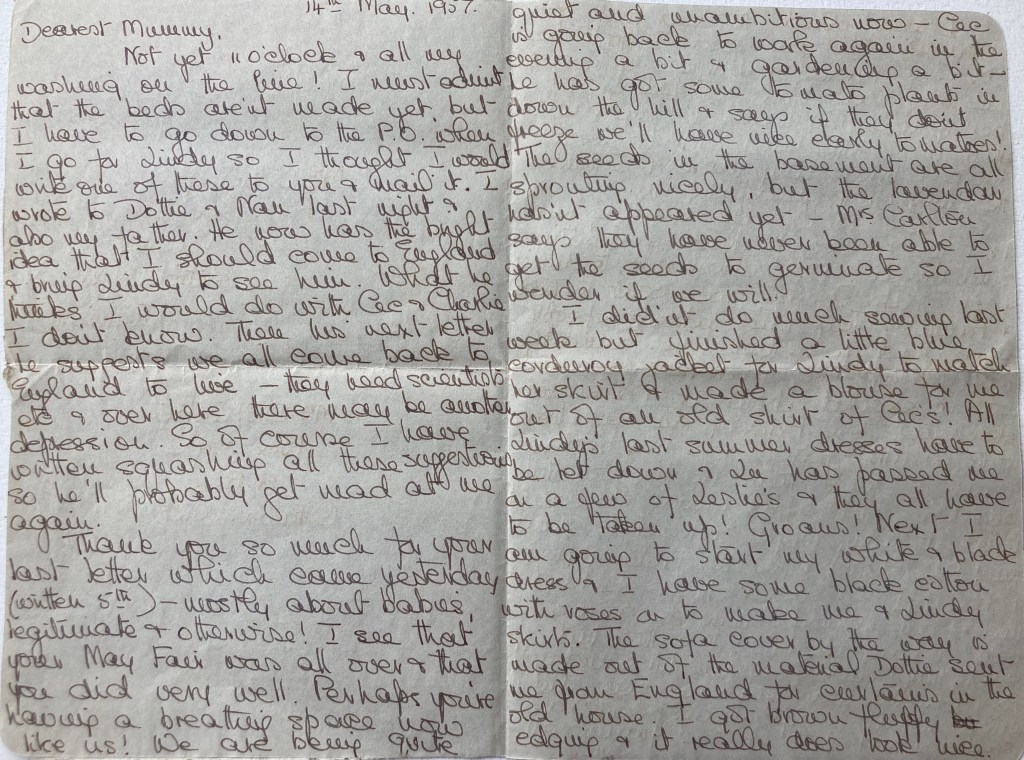 14th May. 1957.
Dearest Mummy,
Not yet 11 o'clock & all my
washing on the line! I must admit
that the beds aren't made yet, but
I have to go down to the P.O. when
I go for Lindy so I thought I would
write one of these to you & mail it. I
wrote to Dottie & Nan last night &
also my father. He now has the bright
idea that I should come to England
& bring Lindy to see him. What he
thinks I would do with Cec & Charlie
I don't know. Then his next letter
he suggests we all come back to
England to live – they need scientists
etc & over here there may be another
depression. So of course I have
written squashing all these suggestions
so he'll probably get mad at me
again.
Thank you so much for your
last letter which came yesterday
(written 5th) – mostly about babies,
legitimate & otherwise! I see that
your May Fair was all over & that
you did very well. Perhaps you're
having a breathing space now
like us! We are being quite
quiet and unambitious now – Cec
is going back to work again in the
evening a bit & gardening a bit –
he has got some tomato plants in
down the hill & says if they don't
freeze we'll have nice early tomatoes!
The seeds in the basement are all
sprouting nicely, but the lavendar
hasn't appeared yet – Mrs Carlton
says they have never been able to
get the seeds to germinate so I
wonder if we will.
I did'nt do much sewing last
week but finished a little blue
corderoy jacket for Lindy to match
her skirt & made a blouse for me
out of an old shirt of Cec's! All
Lindy's last summer dresses have to
be let down & Lu has passed me
on a few of Leslie's & they all have
to be taken up! Groans! Next I
am going to start my white & black
dress & I have some black cotton
with roses on to make me & Lindy
skirts. The sofa cover by the way is
made out of the material Dottie sent
me from England for curtains in the
old house. I got brown fluffy
edging & it really does look nice.